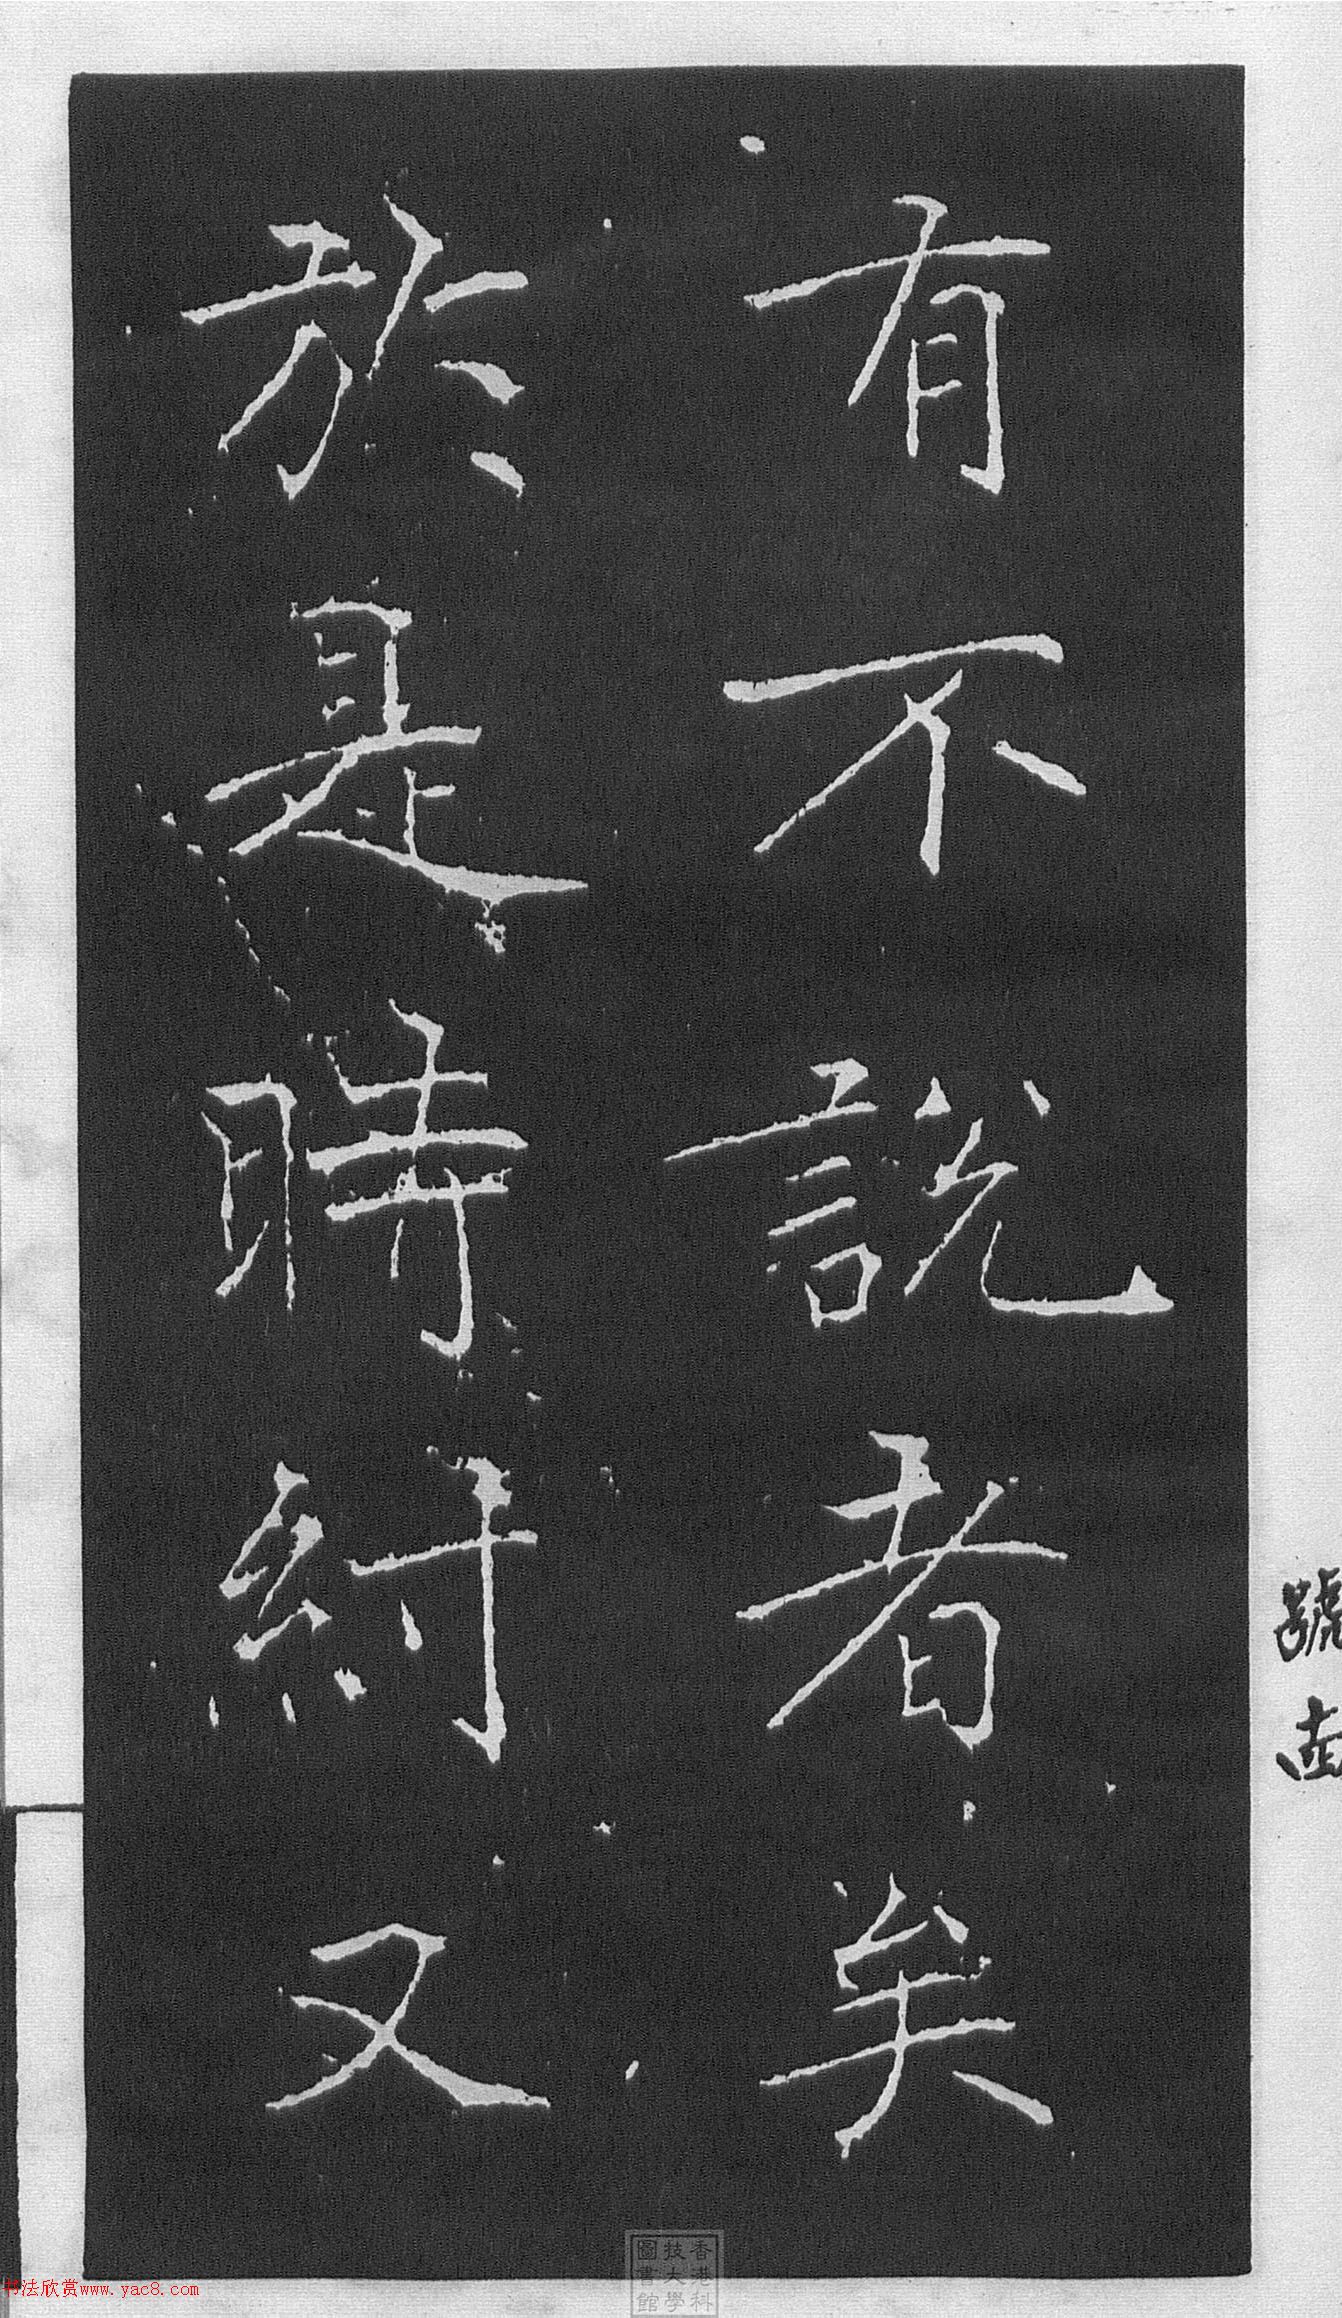 有不說者矣
於是時紂又
號
香港科
技大學
圖書館
书法欣赏www.yac8.com